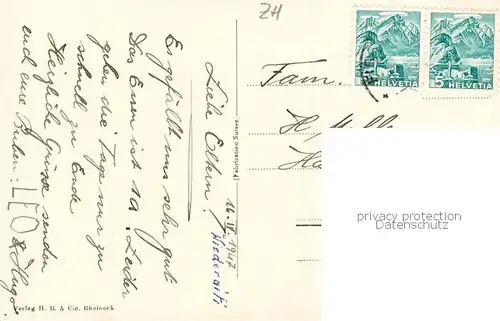 ZH
HELVETIA
5 HELVETIA
Fam.
H.
privacy protection
Datenschutz
(Fabrication Suisse)
16. IV. 1947
Liebe Eltern!
Es gefällt uns sehr gut
Das Essen ist 1a. Leider
gehen die Tage nur zu
schnell zu Ende
Herzliche Grüsse senden
euch eure Buben:
LEO
& Hugo
Verlag H. B. & Cie. Rheineck